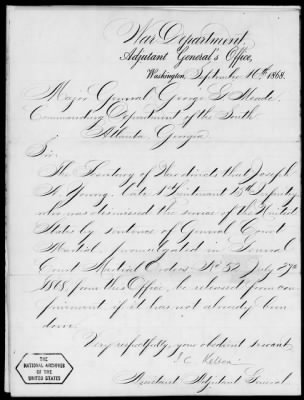 War Department,
Adjutant General's Office,
Washington, September 10th, 1868.
Major General George G. Meade,
Commanding Department of the South
Atlanta, Georgia.
Sir:
The Secretary of War directs that Joseph
Young, late 1st Lieutenant Infantry
who was dismissed the service of the United
States by sentence of General Court
Martial, promulgated in General
Court Martial Orders No 52 July 27th
1868, from this Office, be released from con
finement if it has not already been
done.
Very respectfully, your obedient servant
J. C. Kelton
Assistant Adjutant General.
THE
NATIONAL ARCHIVES
OF THE
UNITED STATES